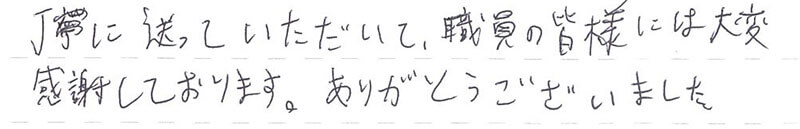 丁寧に送っていただいて、職員の皆様には大変
感謝しております。ありがとうございました